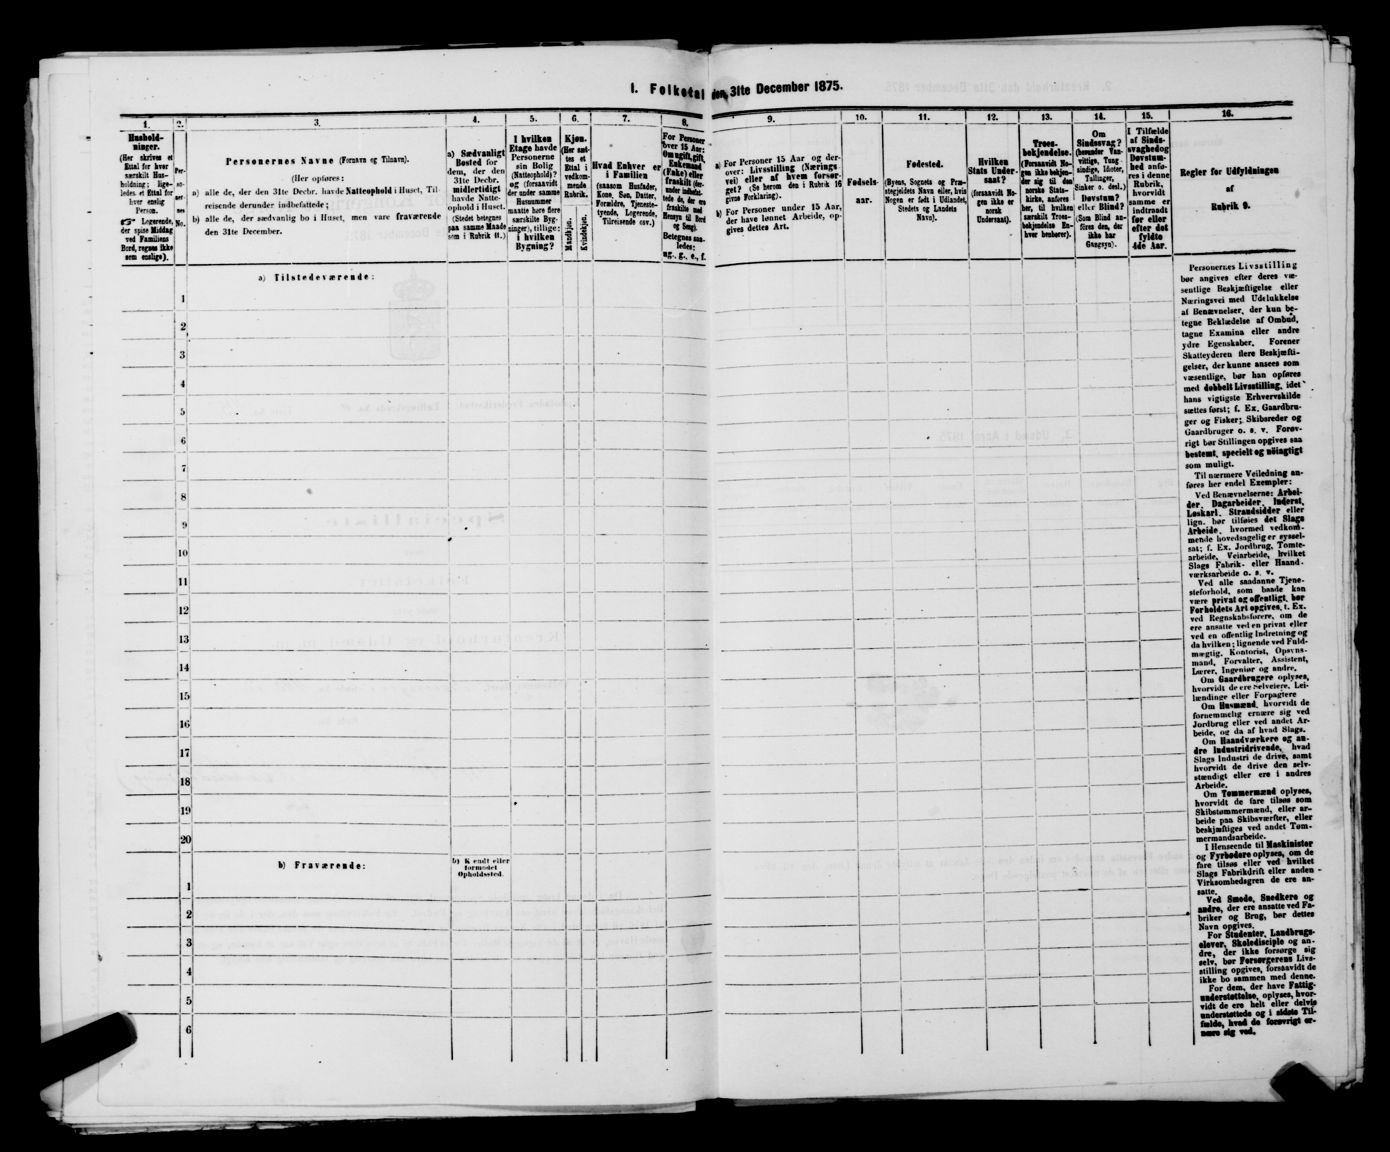 I. Folketal den 31te December 1875.
1.
Hushold-
ninger.
(Her skrives et
Ettal for hver
særskilt Hus-
holdning; lige-
ledes et Ettal for
hver enslig
Person.
☞ Logerende,
der spise Middag
ved Familiens
Bord, regnes ikke
som enslige).
2.
Per-
so-
ner-
nes
No.
3.
Personernes Navne (Fornavn og Tilnavn).
(Her opføres:
a) alle de, der den 31te Decbr. havde Natteophold i Huset, Til-
reisende derunder indbefattede;
b) alle de, der sædvanlig bo i Huset, men vare fraværende
den 31te December.
4.
a) Sædvanligt
Bosted for
dem, der den
31te Decbr.
midlertidigt
havde Natte-
ophold i Huset.
(Stedet betegnes
paa samme Maade
som i Rubrik 11.)
5.
I hvilken
Etage havde
Personerne
sin Bolig
(Natteophold)?
og (forsaavidt
der under samme
Husnummer
maatte høre flere
særskilte Byg-
ninger), tillige:
i hvilken
Bygning?
6.
Kjøn.
(Her sæt-
tes et
Ettal i
vedkom-
mende
Rubrik.
Mandkjøn.
Kvindekjøn.
7.
Hvad Enhver er
i Familien
(saasom Husfader,
Kone, Søn, Datter,
Forældre, Tjeneste-
tyende, Logerende,
Tilreisende osv.)
8.
For Personer
over 15 Aar:
Om ugift, gift,
Enkemand
(Enke) eller
fraskilt (der-
under indbefat-
tede de, der ere
fraskilte med
Hensyn til Bord
og Seng).
Betegnes saa-
ledes:
ug., g., e., f.
9.
a) For Personer 15 Aar og der-
over: Livsstilling (Nærings-
vei) eller af hvem forsør-
get? (Se herom den i Rubrik 16
givne Forklaring).
b) For Personer under 15 Aar,
der have lønnet Arbeide, op-
gives dettes Art.
10.
Fødsels-
aar.
11.
Fødested.
(Byens, Sognets og Præ-
stegjeldets Navn eller, hvis
Nogen er født i Udlandet,
Stedets og Landets
Navn).
12.
Hvilken
Stats Under-
saat?
(forsaavidt No-
gen ikke er
norsk
Undersaat).
13.
Troes-
bekjendelse.
(Forsaavidt No-
gen ikke bekjen-
der sig til den
norske Stats-
kirke, anføres
her, til hvilken
særskilt Troes-
bekjendelse En-
hver henhører).
14.
Om
Sindssvag?
(herunder Van-
vittige, Tung-
sindige, Idioter,
Tullinger,
Sinker o. desl.)
Døvstum?
eller Blind?
(Som Blind an-
føres den, der
ikke har
Gangsyn).
15.
I Tilfælde
af Sinds-
svaghed og
Døvstum-
hed anfø-
res i denne
Rubrik,
hvorvidt
samme er
indtraadt
før eller
efter det
fyldte
4de Aar.
16.
Regler for Udfyldningen
af
Rubrik 9.
a) Tilstedeværende:
1
2
3
4
5
6
7
8
9
10
11
12
13
14
15
16
17
18
19
20
b) Fraværende:
b) Kjendt eller
formodet
Opholdssted.
1
2
3
4
5
6
Personernes Livsstilling
bør angives efter deres væ-
sentlige Beskjæftigelse eller
Næringsvei med Udelukkelse
af Benævnelser, der kun be-
tegne Beklædelse af Ombud,
tagne Examina eller andre
ydre Egenskaber. Forener
Skatteyderen flere Beskjæfti-
gelser, der kunne ansees som
væsentlige, bør han opføres
med dobbelt Livsstilling, idet
hans vigtigste Erhvervskilde
sættes først; f. Ex. Gaardbru-
ger og Fisker; Skibsreder og
Gaardbruger o. s. v. Forøv-
rigt bør Stillingen opgives saa
bestemt, specielt og nöiagtigt
som muligt.
Til nærmere Veiledning an-
føres her endel Exempler:
Ved Benævnelserne: Arbei-
der, Dagarbeider, Inderst,
Løskarl, Strandsidder eller
lign. bør tilføies det Slags
Arbeide, hvormed vedkom-
mende hovedsagelig er syssel-
sat; f. Ex. Jordbrug, Tomte-
arbeide, Veiarbeide, hvilket
Slags Fabrik- eller Haand-
værksarbeide o. s. v.
Ved alle saadanne Tjene-
steforhold, som baade kan
være privat og offentligt, bør
Forholdets Art opgives, t. Ex.
ved Regnskabsførere, om de
ere ansatte ved en privat eller
ved en offentlig Indretning og
da hvilken; lignende ved Fuld-
mægtig, Kontorist, Opsyns-
mand, Forvalter, Assistent,
Lærer, Ingeniør og andre.
Om Gaardbrugere oplyses,
hvorvidt de ere Selveiere, Lei-
lændinge eller Forpagtere
Om Husmænd, hvorvidt de
fornemmelig ernære sig ved
Jordbrug eller ved andet Ar-
beide, og da af hvad Slags.
Om Haandværkere og an-
dre Industridrivende, hvad
Slags Industri de drive, samt
hvorvidt de drive den selv-
stændigt eller ere i andres
Arbeide.
Om Tømmermænd oplyses,
hvorvidt de fare tilsøs som
Skibstømmermænd, eller ar-
beide paa Skibsværfter, eller
beskjæftiges ved andet Tøm-
mermandsarbeide.
I Henseende til Maskinister
og Fyrbødere oplyses, om de
fare tilsøs eller ved hvilket
Slags Fabrikdrift eller anden
Virksomhedsgren de ere an-
satte.
Ved Smede, Snedkere og
andre, der ere ansatte ved Fa-
briker og Brug, bør dettes
Navn opgives.
For Studenter, Landbrugs-
elever, Skoledisciple og an-
dre, der ikke forsørge sig
selv, bør Forsørgerens Livs-
stilling opgives, forsaavidt de
ikke bo sammen med denne.
For dem, der have Fattig-
understøttelse, oplyses, hvor-
vidt de ere helt eller delvis
understøttede og i sidste Til-
fælde, hvad de forøvrigt er-
nære sig ved.